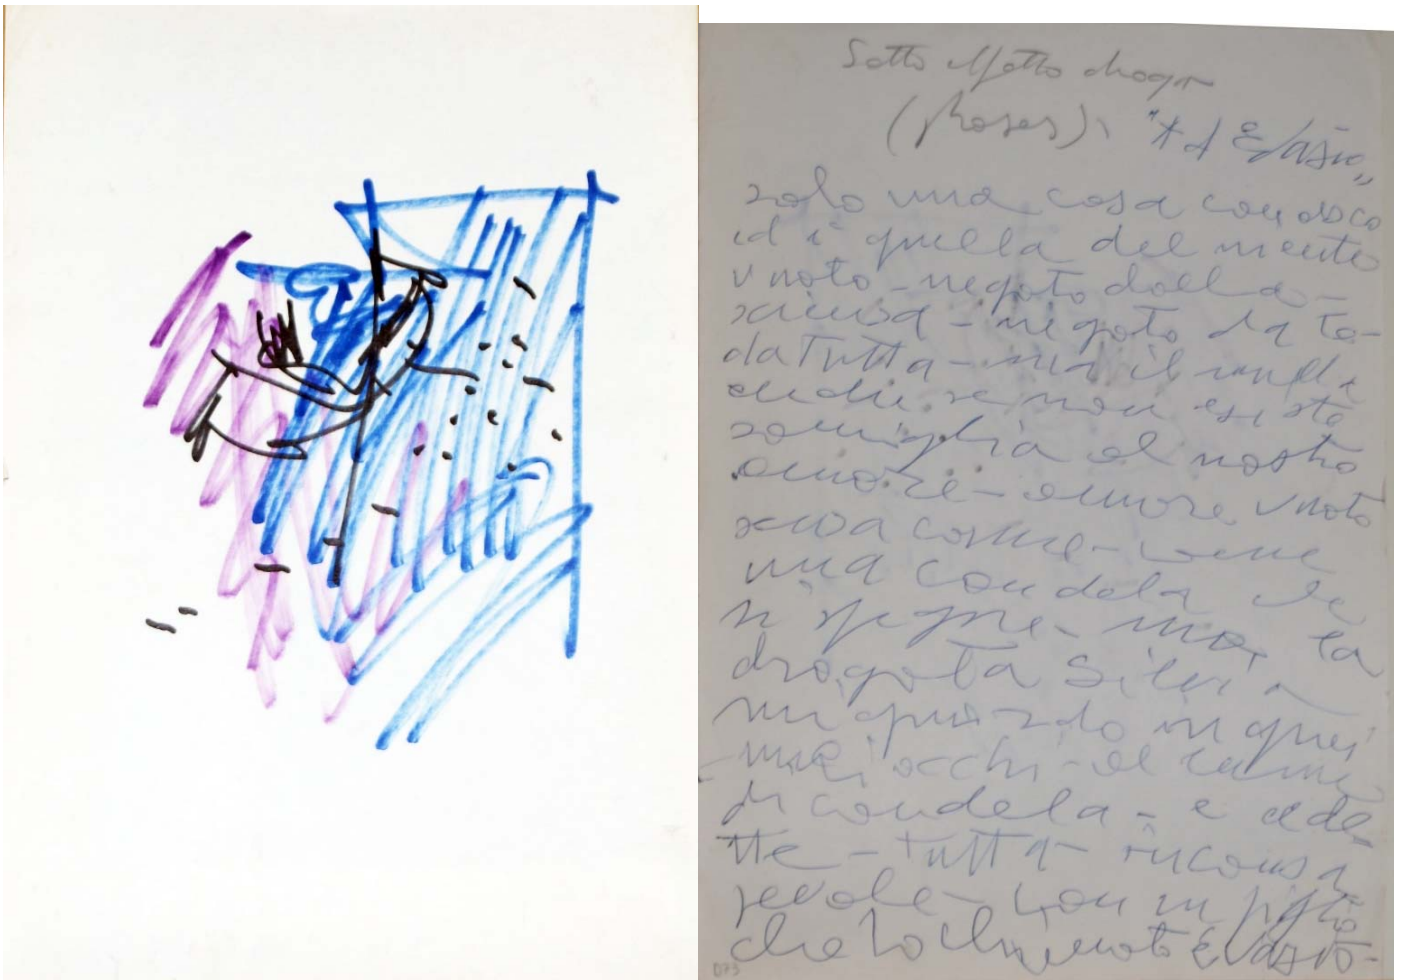 Sotto Motto droga
(Roses). "* d Evasio"
solo una cosa conosco
ed è quella del niente
vuoto - negato dalla co-
scienza - negato da te -
da tutta - ma il nulla
anche se non esiste
somiglia al nostro
amore - amore vuoto
senza come - come
una candela che
si spegne - ma la
drogata Silvia
mi guardo in quei
miei occhi - al lume
di candela - e
tutta inconsa
pevole - con un figlio
che lo
073